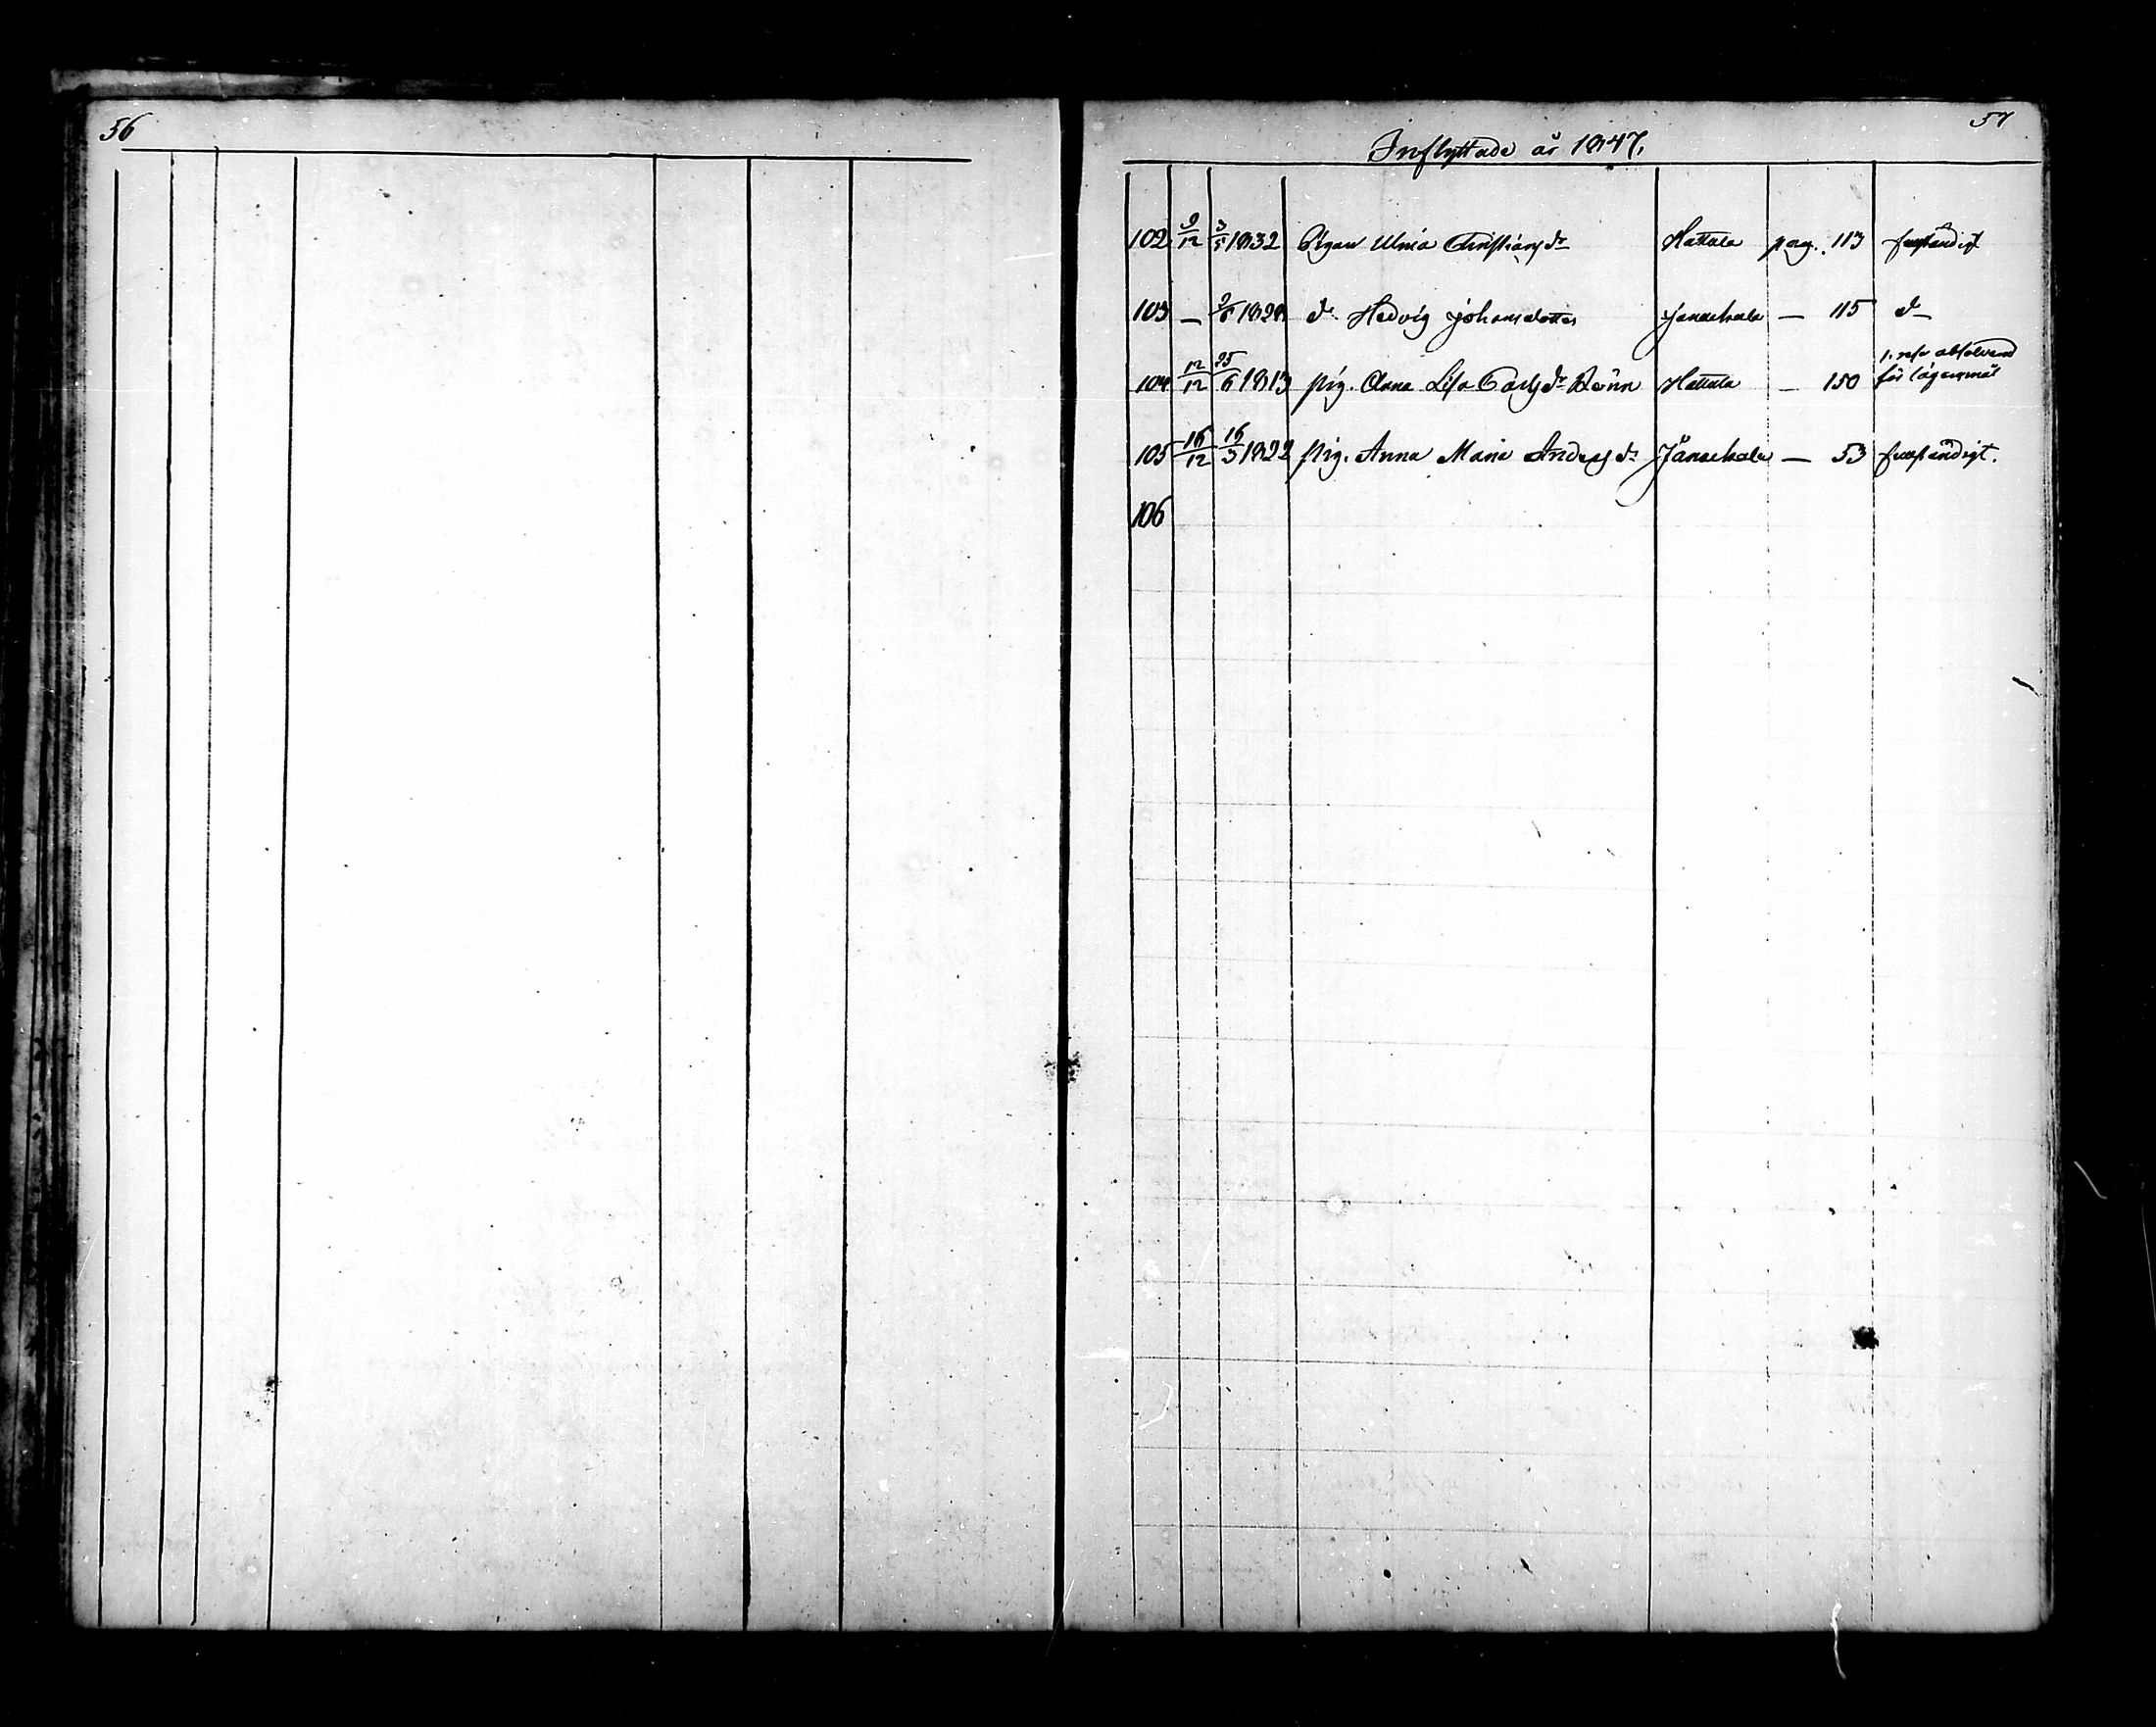 56
57
Inflyttade år 1847.
102 9/12 3/5 1832 Pigan Ulrica Christiansdr Hattula pag. 113 frejdändigt
103 — 2/8 1828 do Hedvig Johansdotter Janackala — 115 do
104 12/12 25/6 1813 pig. Anna Lisa Carlsdr Rönn Hattula — 150 1. resa absolverad för lägersmål
105 16/12 16/3 1822 pig. Anna Maria Andersdr Jänackala — 53
106